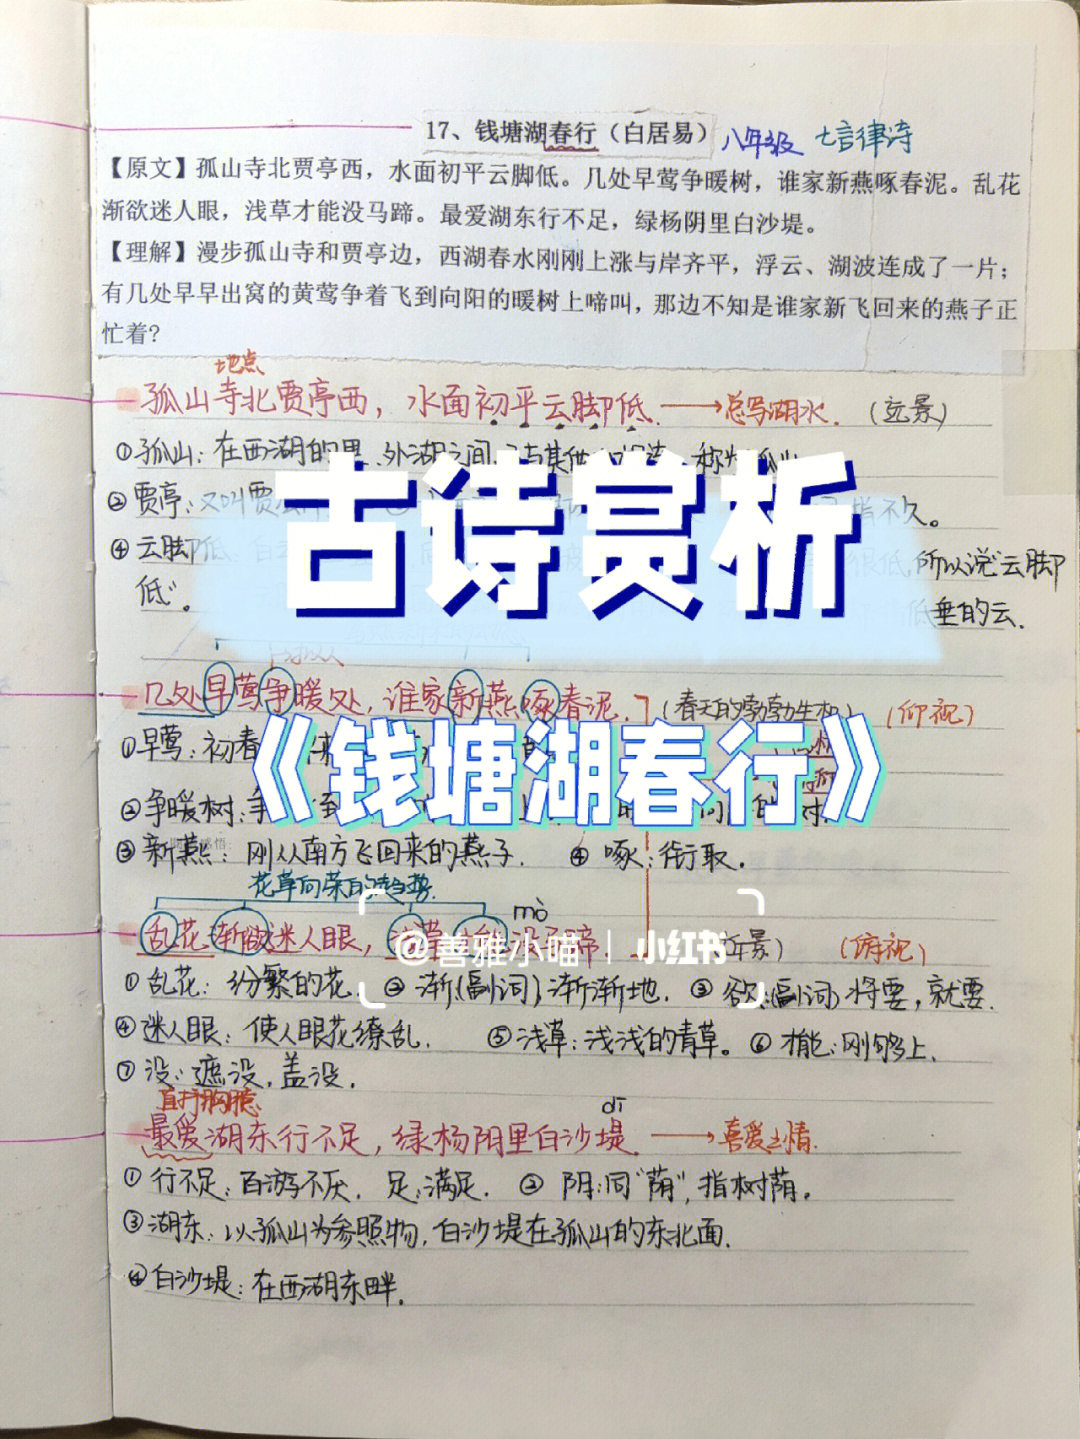 17、钱塘湖春行（白居易）八年级 七言律诗
【原文】孤山寺北贾亭西，水面初平云脚低。几处早莺争暖树，谁家新燕啄春泥。乱花
渐欲迷人眼，浅草才能没马蹄。最爱湖东行不足，绿杨阴里白沙堤。
【理解】漫步孤山寺和贾亭边，西湖春水刚刚上涨与岸齐平，浮云、湖波连成了一片；
有几处早早出窝的黄莺争着飞到向阳的暖树上啼叫，那边不知是谁家新飞回来的燕子正
忙着?
地点
孤山寺北贾亭西，水面初平云脚低. → 总写湖水. (远景)
①孤山：在西湖的里、外湖之间
古诗赏析
②贾亭：又叫贾 指不久。
④云脚低 所以说"云脚
低"。 低垂的云.
几处早莺争暖处，谁家新燕啄春泥. (春天的勃勃生机) (仰视)
《钱塘湖春行》
①早莺：初春
②争暖树：争 到 树.
③新燕：刚从南方飞回来的燕子. ④啄：衔取.
花草向荣的趋势.
mò
乱花渐欲迷人眼， (近景) (俯视)
@善雅小喵 | 小红书
①乱花：纷繁的花. ②渐(副词)渐渐地. ③欲(副词)将要，就要.
④迷人眼：使人眼花缭乱. ⑤浅草：浅浅的青草。⑥才能：刚够上.
⑦没：遮没，盖没.
直抒胸臆
dī
最爱湖东行不足，绿杨阴里白沙堤. → 喜爱之情.
①行不足：百游不厌. 足：满足. ②阴：同"荫"，指树荫。
③湖东：以孤山为参照物，白沙堤在孤山的东北面.
④白沙堤：在西湖东畔.